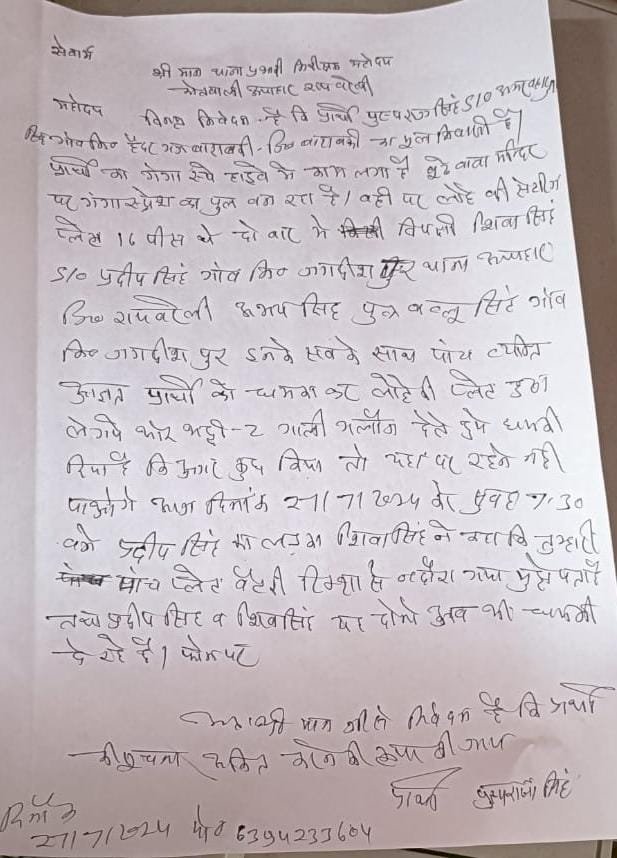 सेवा में
श्री मान थाना प्रभारी निरीक्षक महोदय
कोतवाली ऊचाहार रायबरेली
महोदय विनम्र निवेदन है कि प्रार्थी पुष्पराज सिंह S/O
सिंह गाँव नि० हैदरगढ़ बाराबंकी जि० बाराबंकी का मूल निवासी है।
प्रार्थी का गंगा स्प्रे हाइवे में काम लगा है बूढ़े बाबा मन्दिर
पर गंगा स्प्रेश का पुल बन रहा है। वही पर लोहे की सेटरिंग
प्लेट 16 पीस को दो बार में विपक्षी शिवा सिंह
S/O प्रदीप सिंह गाँव नि० जगदीशपुर थाना ऊचाहार
जि० रायबरेली अभय सिंह पुत्र बल्लू सिंह गाँव
नि० जगदीशपुर इनके सबके साथ पांच व्यक्ति
अज्ञात प्रार्थी को धमका कर लोहे की प्लेट उठा
ले गये और भद्दी-2 गाली गलौज देते हुये धमकी
दिया है कि अगर कुछ किया तो यहां पर रहने नही
पाओगे आज दिनांक 27/7/2024 को सुबह 7:30
बजे प्रदीप सिंह का लड़का शिवा सिंह ने कहा कि तुम्हारी
पांच प्लेट बैटरी रिक्शा से गया मुझे पता है
तथा प्रदीप सिंह व शिवा सिंह यह दोनो की धमकी
दे रहे है। फोन पर
अतः श्री मान जी से निवेदन है कि प्रार्थी
की सूचना अंकित करने की कृपा की जाय
प्रार्थी पुष्पराज सिंह
दिनांक
27/7/2024 मो० 6394233604